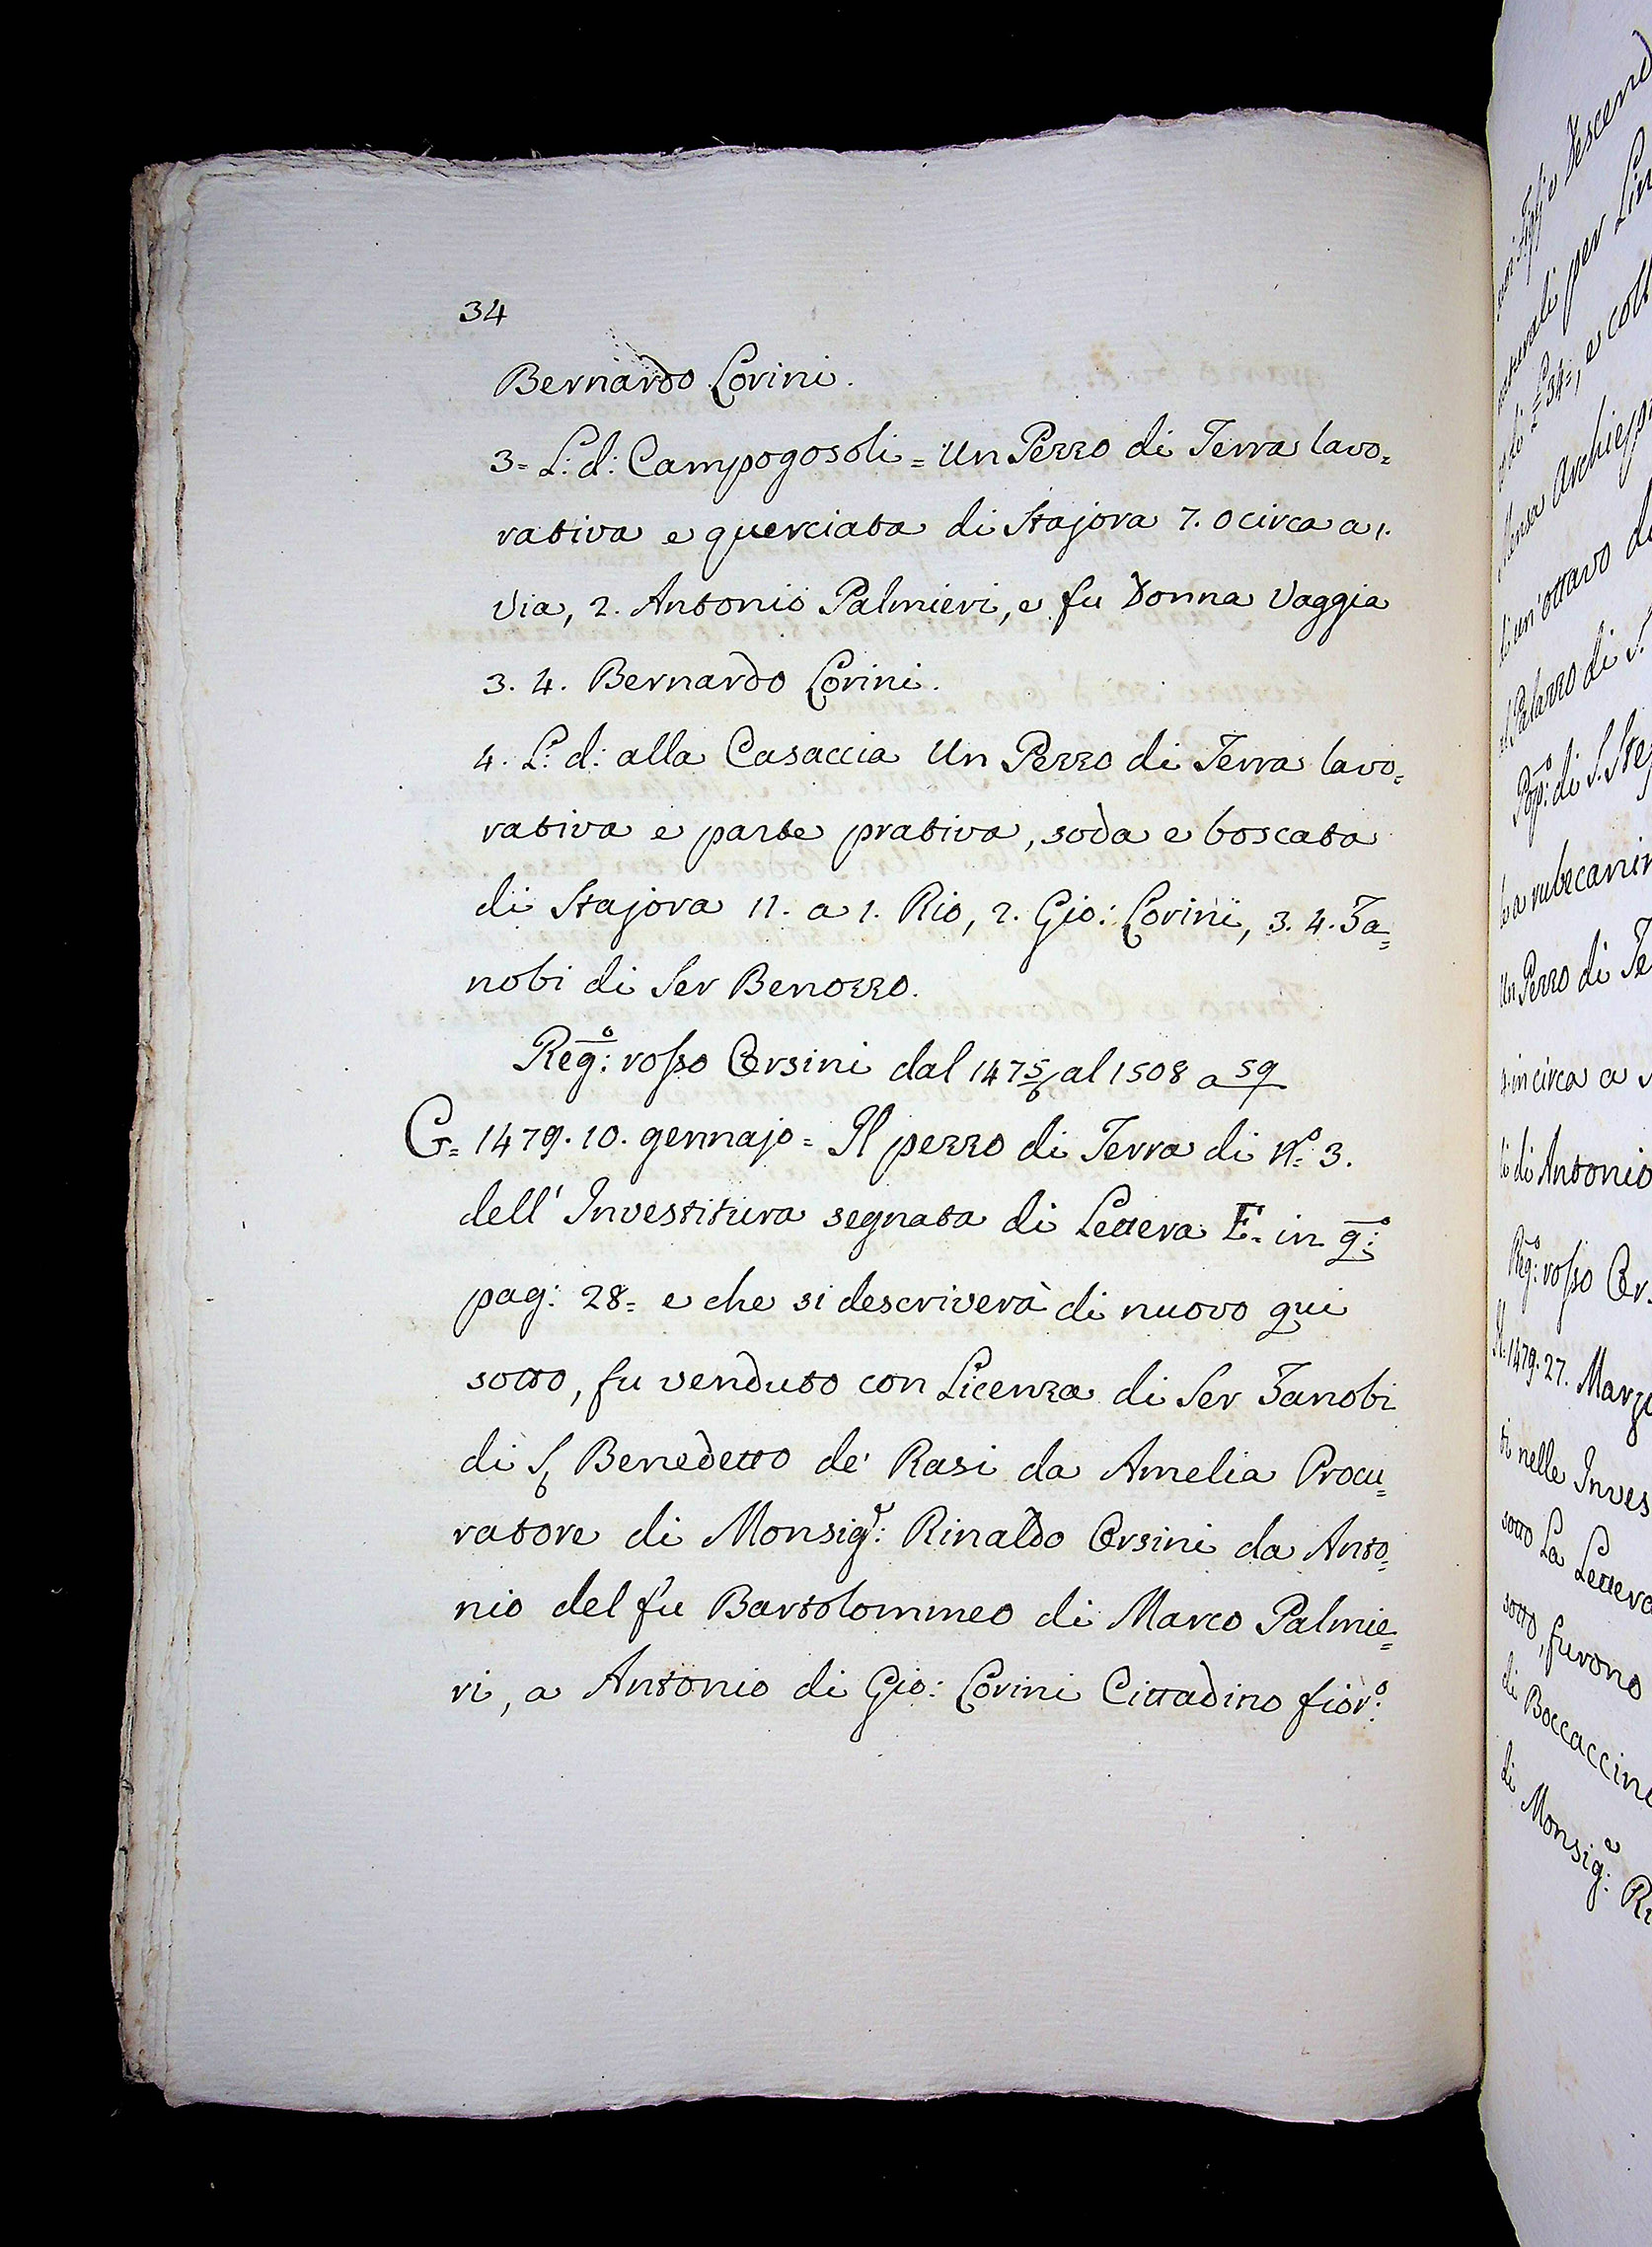 34
Bernardo Lorini.
3= L: d: Campogosoli = Un Pezzo di Terra lavo=
rativa e querciata di Stajora 7. o circa a 1.
Via, 2. Antonio Palmieri, e fu Donna Vaggia
3. 4. Bernardo Lorini.
4. L: d: alla Casaccia Un Pezzo di Terra lavo=
rativa e parte prativa, soda e boscata
di Stajora 11. a 1. Rio, 2. Gio: Lorini, 3. 4. Za=
nobi di Ser Benozzo.
Reg:o rosso Orsini dal 1475/6 al 1508 a 59
G= 1479. 10. gennajo = Il pezzo di Terra di N.o 3.
dell' Investitura segnata di Lettera E. in q:o
pag: 28= e che si descriverà di nuovo qui
sotto, fu venduto con Licenza di Ser Zanobi
di S. Benedetto de' Rasi da Amelia Procu=
ratore di Monsig:r Rinaldo Orsini da Anto=
nio del fu Bartolommeo di Marco Palmie=
ri, a Antonio di Gio: Lorini Cittadino fior:o
Descend
naturali per Lin
di £ 34=, e coll
Mensa Archiep
di un'ottavo di
el Palazzo di S.
Pop:o di S. Ste
Un Pezzo di Te
incirca a
di Antonio
Reg:o rosso Or
H. 1479. 27. Marzo
ti nelle Inves
sotto La Lettera
sotto, furono
di Boccaccino
di Monsig:e Ri